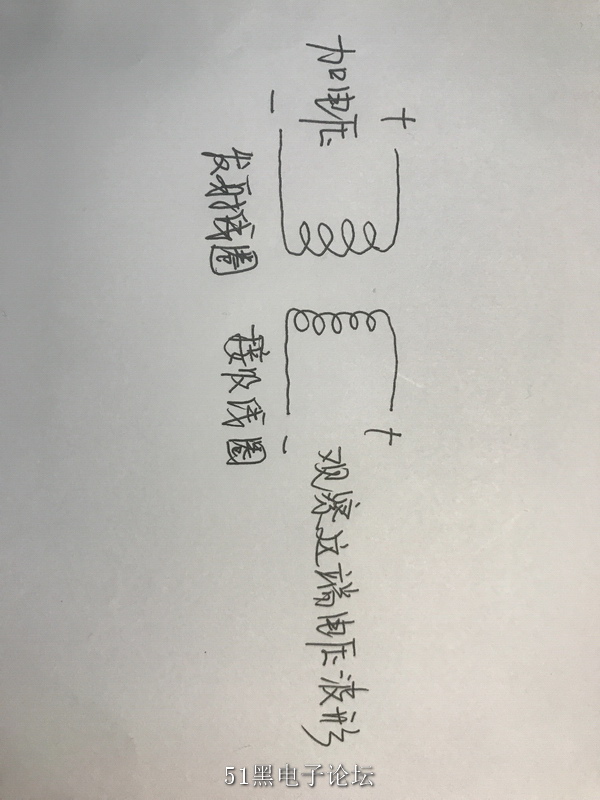 加电压
+
-
发射线圈
接收线圈
+
-
观察这端电压波形
51黑电子论坛